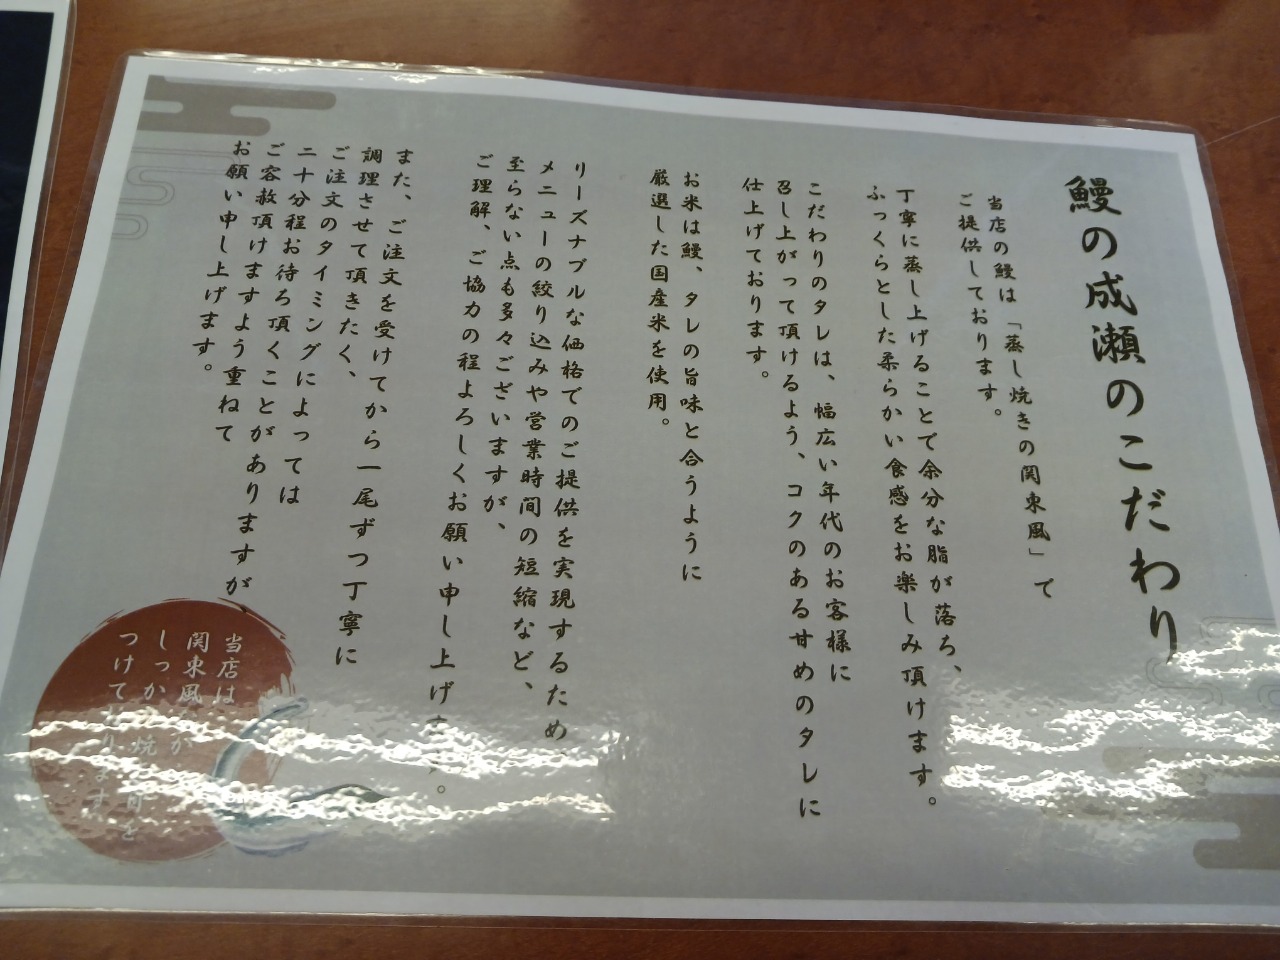 鰻の成瀬のこだわり
当店の鰻は「蒸し焼きの関東風」で
ご提供しております。
丁寧に蒸し上げることで余分な脂が落ち、
ふっくらとした柔らかい食感をお楽しみ頂けます。
こだわりのタレは、幅広い年代のお客様に
召し上がって頂けるよう、コクのある甘めのタレに
仕上げております。
お米は鰻、タレの旨味と合うように
厳選した国産米を使用。
リーズナブルな価格でのご提供を実現するため、
メニューの絞り込みや営業時間の短縮など、
至らない点も多々ございますが、
ご理解、ご協力の程よろしくお願い申し上げ
また、ご注文を受けてから一尾ずつ丁寧に
調理させて頂きたく、
ご注文のタイミングによっては
二十分程お待ち頂くことがありますが
ご容赦頂けますよう重ねて
お願い申し上げます。
当店は
関東風 が
しっか 焼
つけて